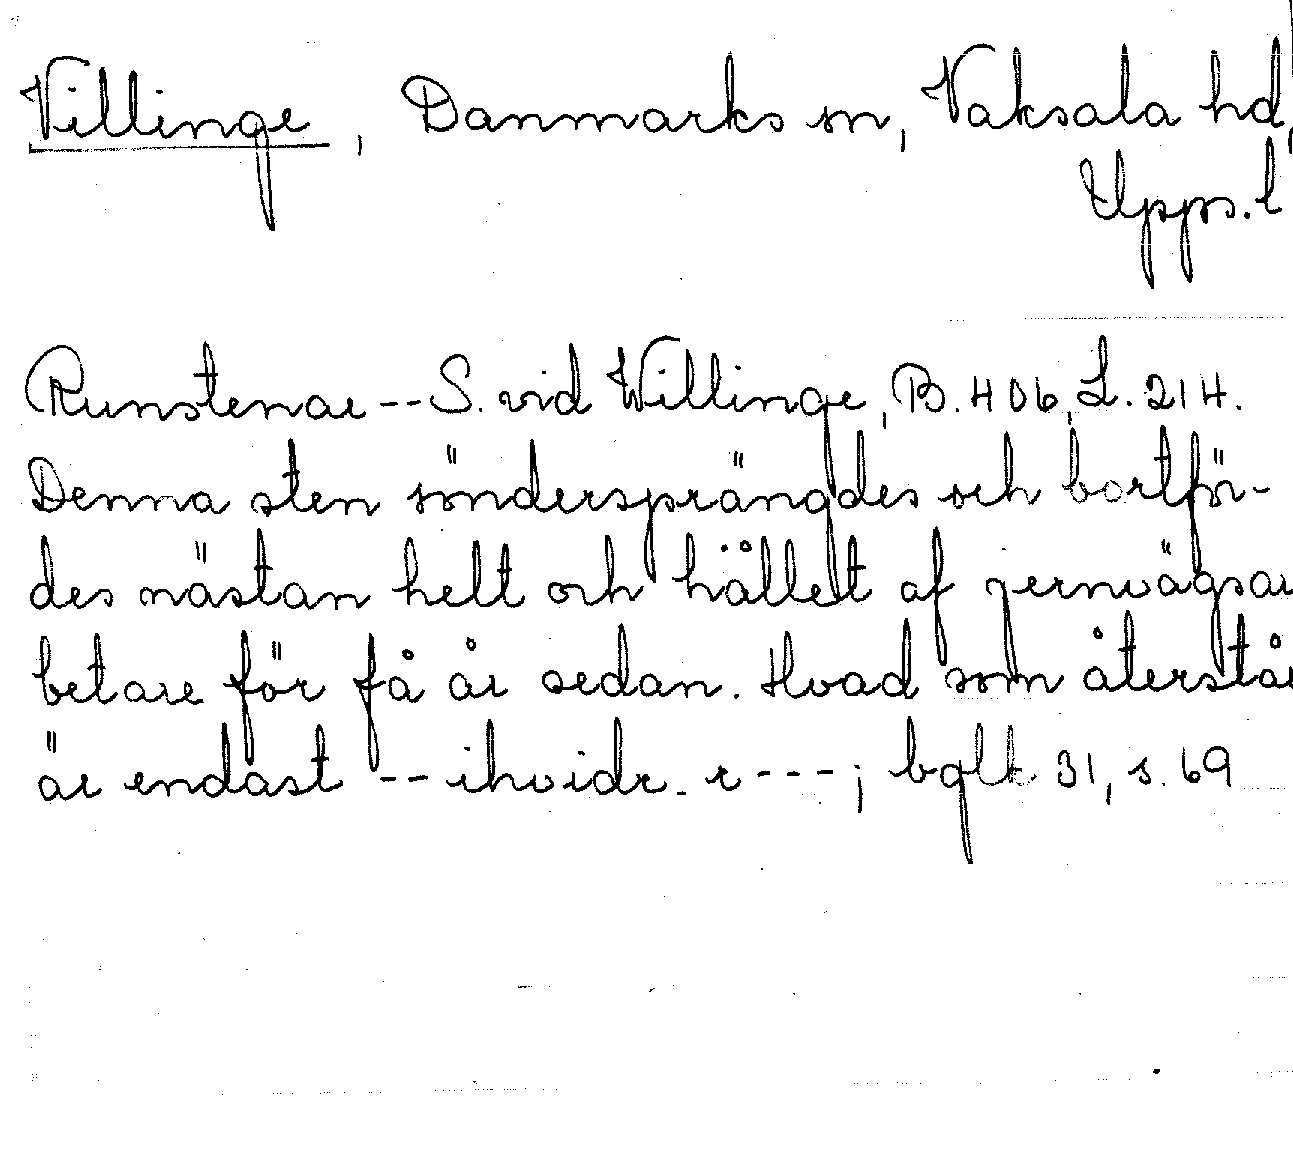 Villinge, Danmarks sn, Vaksala hd,
Upps. l
Runstenar -- S. vid Willinge, B. 406, L. 214.
Denna sten söndersprängdes och bortför-
des nästan helt och hållet af jernvägsar
betare för få år sedan. Hvad som återstår
är endast -- ihvidr. r ---; bglt 31, s. 69